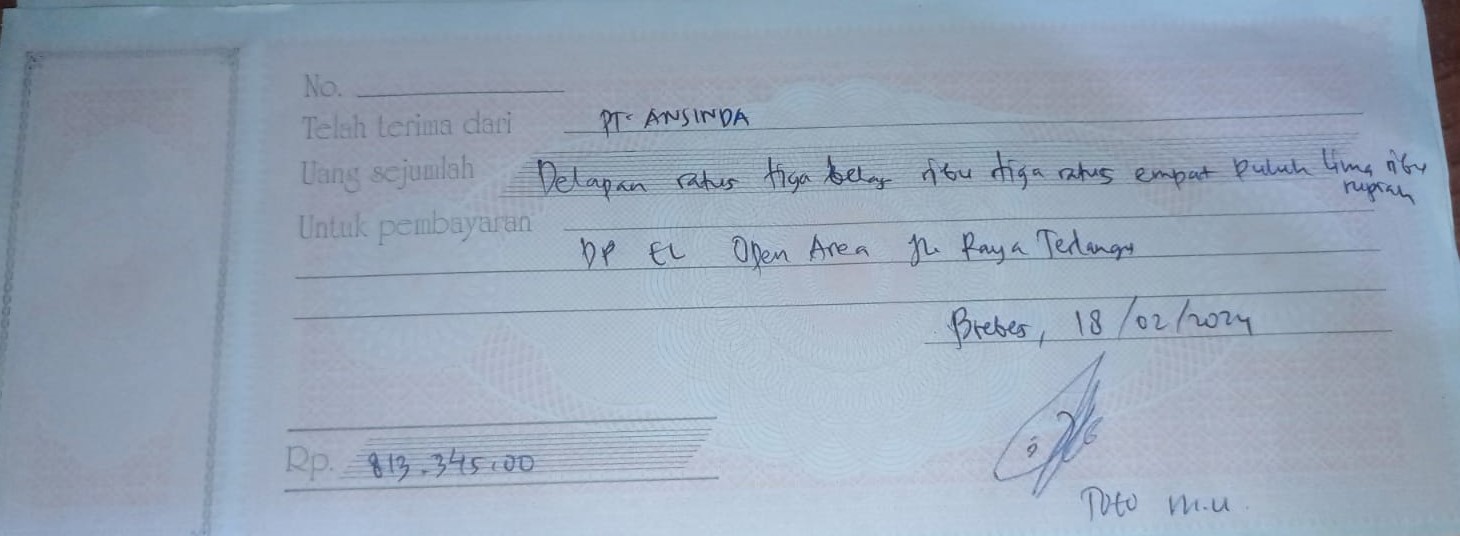 No.
Telah terima dari PT. ANSINDA
Uang sejumlah Delapan ratus tiga belas ribu tiga ratus empat puluh lima ribu
rupiah
Untuk pembayaran
DP EL Open Area Jl. Raya Terlangu
Brebes, 18/02/2024
Rp. 813.345,00
Toto M.U.